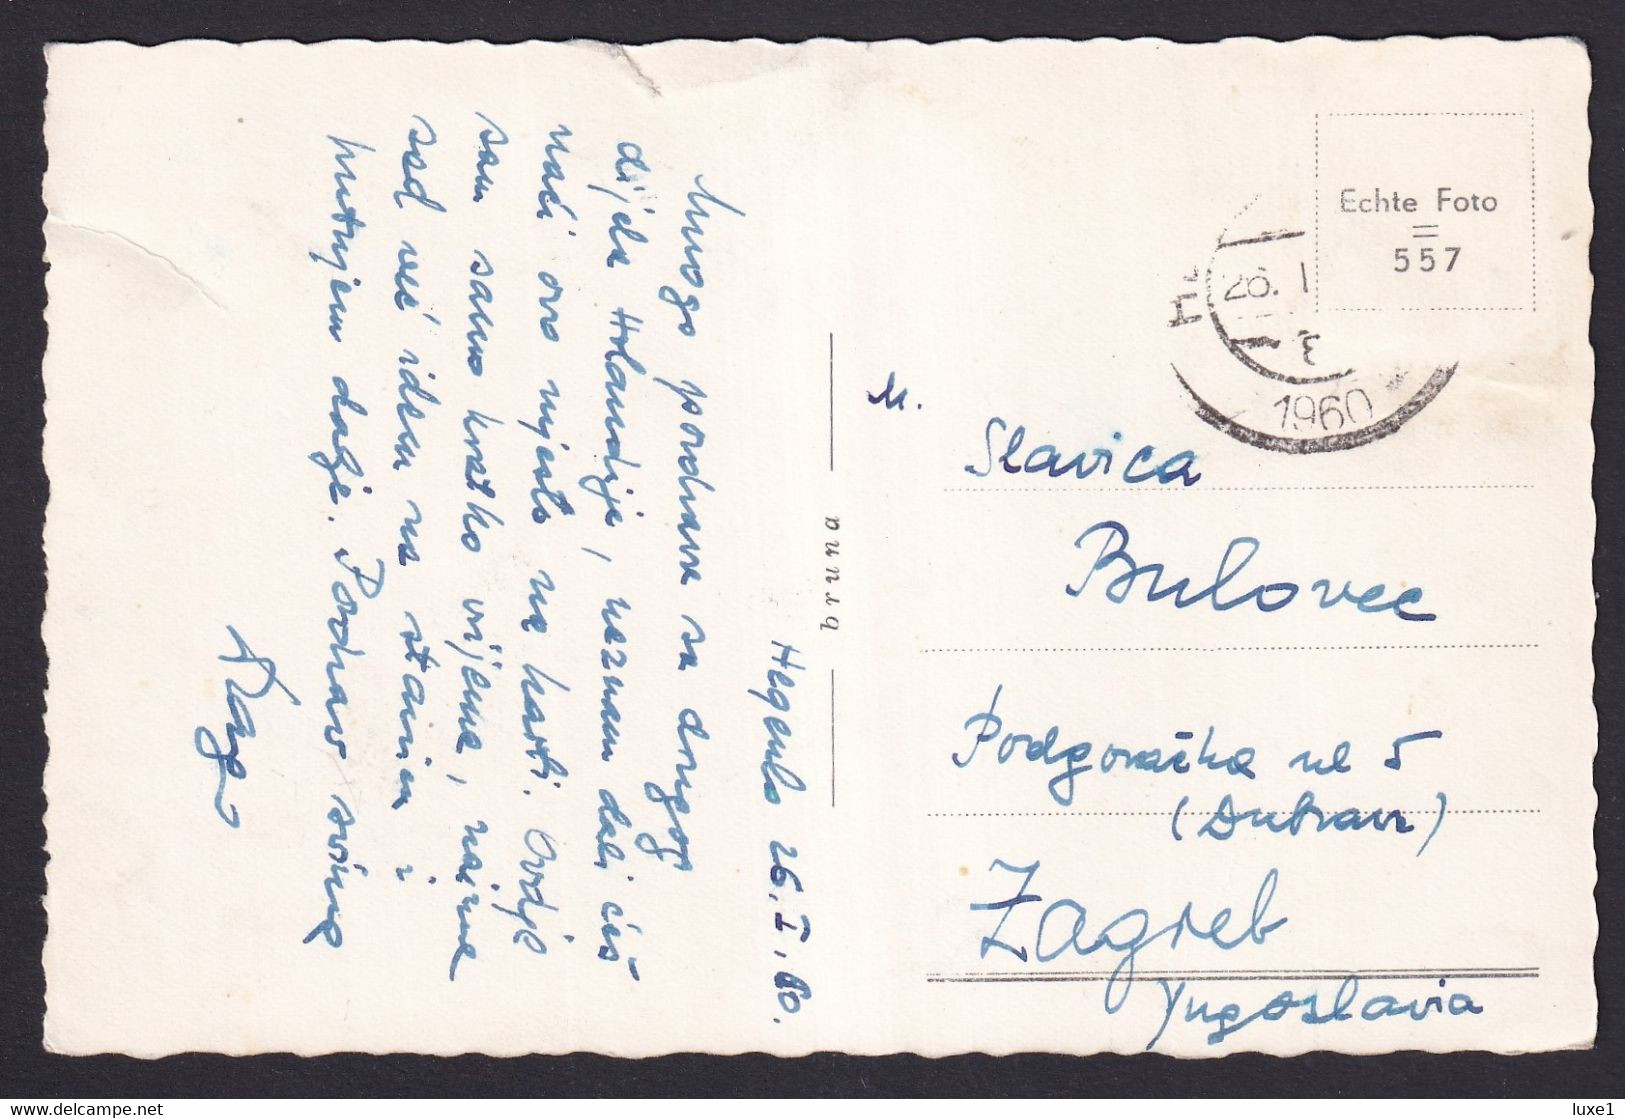 Hegenlo 26.I.60.
Mnogo pozdrava sa drugog
dijela Holandije, neznam dali ćeš
naći ovo mjesto na karti. Ovdje
sam samo kratko vrijeme, naime
sad već idem na stanicu i
putujem dalje. Pozdrav svima
Drago
bruna
Echte Foto
=
557
26. I
1960
M.
Slavica
Bulovec
Podgoračka ul 5
(Dubrava)
Zagreb
Yugoslavia
delcampe.net
luxe1